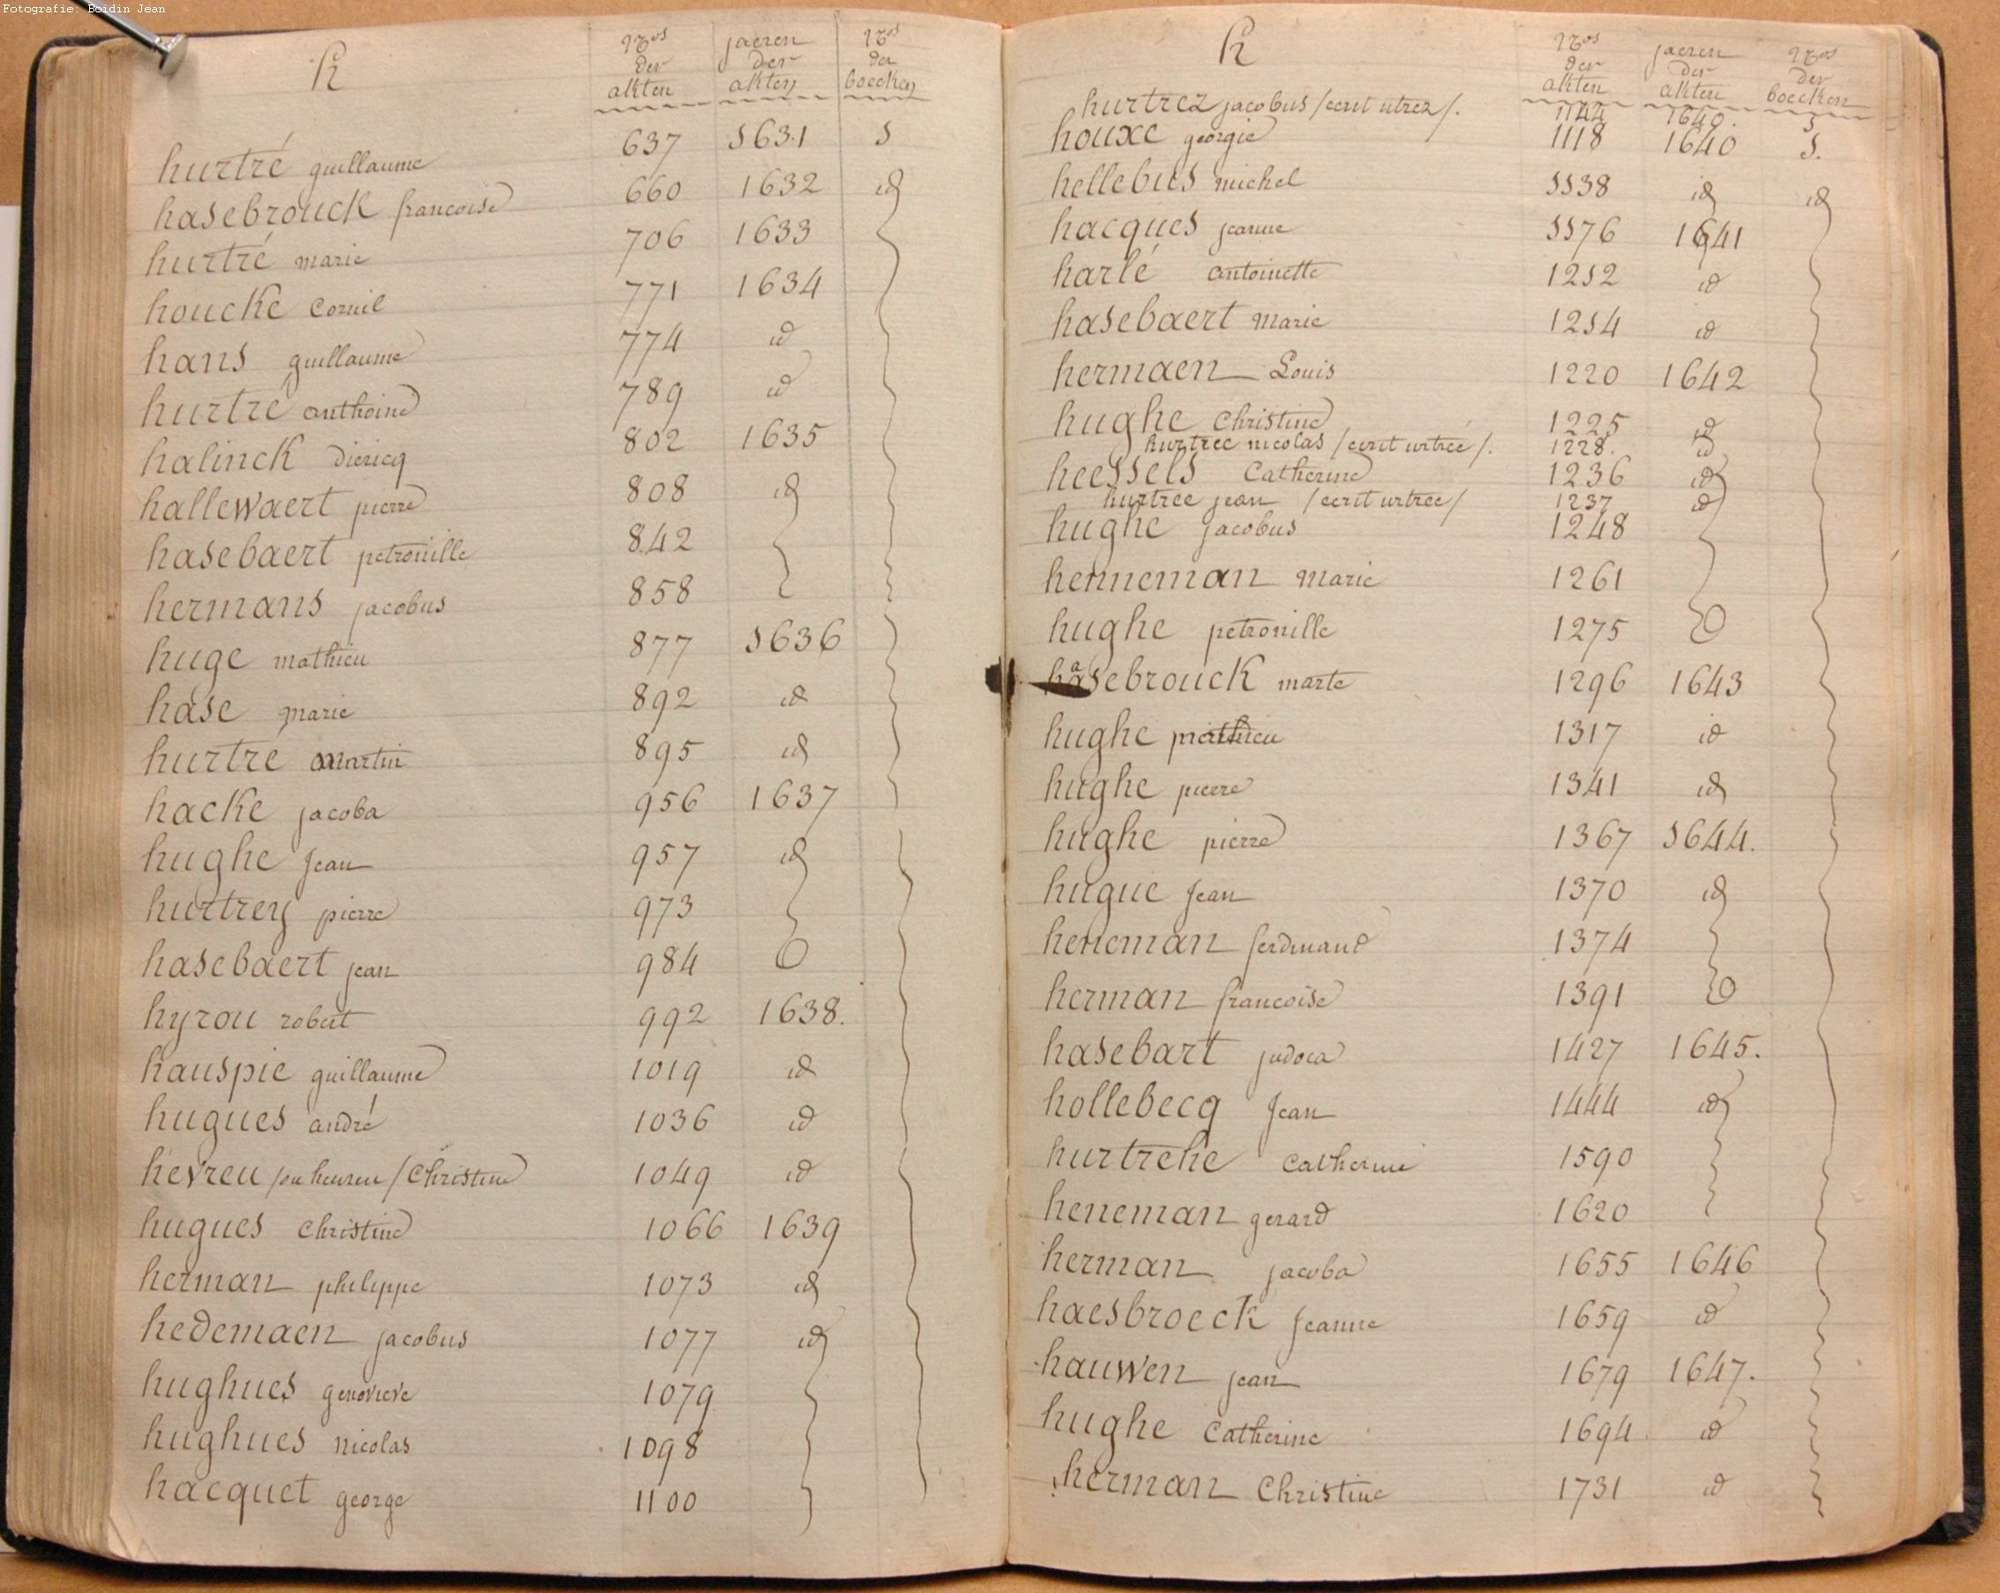 Fotografie: Boidin Jean
h
Nros der akten jaeren der akten Nros der boecken
hurtré guillaume 637 1631 1
hasebrouck francoise 660 1632 id
hurtré marie 706 1633
houcke Cornil 771 1634
hans guillaume 774 id
hurtré anthoine 789 id
halinck diericq 802 1635
hallewaert pierre 808 id
hasebaert petronille 842
hermans jacobus 858
huge mathieu 877 1636
hase marie 892 id
hurtré martin 895 id
hacke jacoba 956 1637
hughe Jean 957 id
hurtrey pierre 973
hasebaert jean 984
hyrou robert 992 1638.
hauspie guillaume 1019 id
hugues andré 1036 id
hevreu /ou heureu/ Christine 1049 id
hugues Christine 1066 1639
herman philippe 1073 id
hedemaen jacobus 1077 id
hughues genevieve 1079
hughues nicolas 1098
hacquet george 1100
h
Nros der akten jaeren der akten Nros der boecken
hurtrez jacobus /ecrit utrez/. 1144 1640.
houxe georgie 1118 1640 1.
hellebus michel 1138 id id
hacques jeanne 1176 1641
harlé antoinette 1212 id
hasebaert marie 1214 id
hermaen Louis 1220 1642
hughe Christine 1225 id
hurtree nicolas /ecrit urtree/. 1228. id
heessels Catherine 1236 id
hurtree jean /ecrit urtree/ 1237 id
hughe jacobus 1248
henneman marie 1261
hughe petronille 1275
hasebrouck marte 1296 1643
hughe mathieu 1317 id
hughe pierre 1341 id
hughe pierre 1367 1644.
hugue Jean 1370 id
heneman ferdinand 1374
herman francoise 1391
hasebart judoca 1427 1645.
hollebecq Jean 1444 id
hurtrehe Catherine 1590
heneman gerard 1620
herman jacoba 1655 1646
haesbroeck Jeanne 1659 id
hauwen jean 1679 1647.
hughe Catherine 1694 id
herman Christine 1731 id